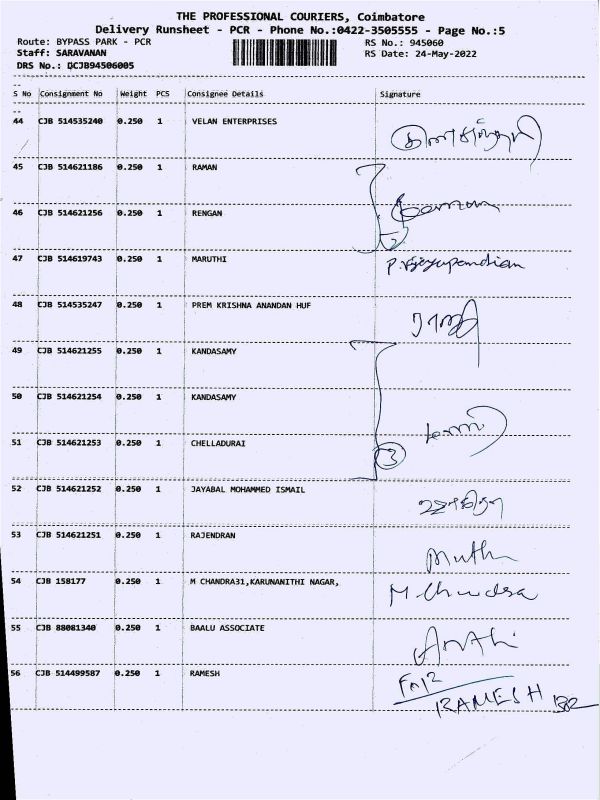 THE PROFESSIONAL COURIERS, Coimbatore
Delivery Runsheet - PCR - Phone No.:0422-3505555 - Page No.:5
Route: BYPASS PARK - PCR RS No.: 945060
Staff: SARAVANAN RS Date: 24-May-2022
DRS No.: DCJB94506005
S No Consignment No Weight PCS Consignee Details Signature
44 CJB 514535240 0.250 1 VELAN ENTERPRISES
45 CJB 514621186 0.250 1 RAMAN
46 CJB 514621256 0.250 1 RENGAN
2
47 CJB 514619743 0.250 1 MARUTHI P. Vijayapandian
48 CJB 514535247 0.250 1 PREM KRISHNA ANANDAN HUF
49 CJB 514621255 0.250 1 KANDASAMY
50 CJB 514621254 0.250 1 KANDASAMY
51 CJB 514621253 0.250 1 CHELLADURAI 3
52 CJB 514621252 0.250 1 JAYABAL MOHAMMED ISMAIL
53 CJB 514621251 0.250 1 RAJENDRAN Muthu
54 CJB 158177 0.250 1 M CHANDRA31,KARUNANITHI NAGAR, M. Chandra
55 CJB 88081340 0.250 1 BAALU ASSOCIATE
56 CJB 514499587 0.250 1 RAMESH
RAMESH